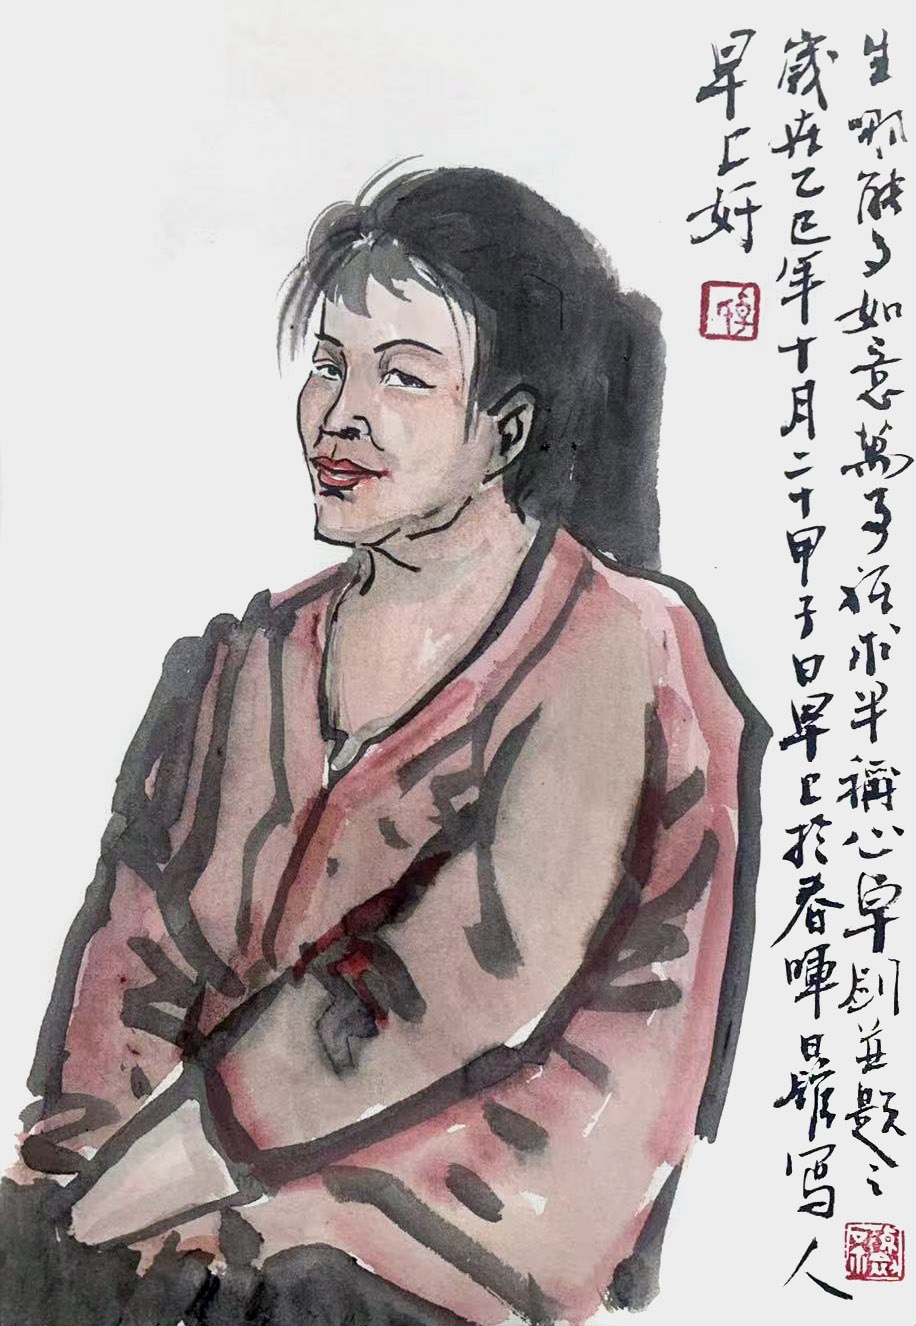 生哪能多如意萬事祗求半稱心卓釗並题之
歲在乙巳年十月二十甲子日早上於春暉写人
早上好